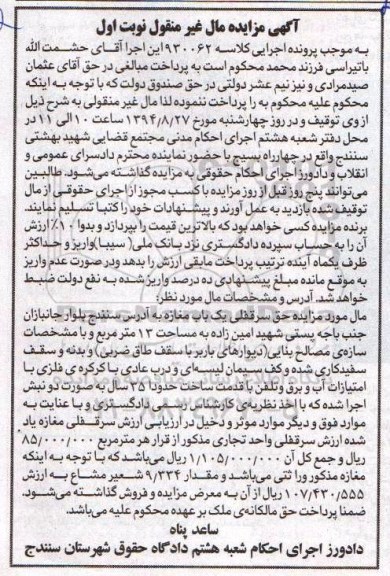 آگهی مزایده مال غیر منقول نوبت اول
به موجب پرونده اجرایی کلاسه ۹۳۰۰۶۲ این اجرا آقای حشمت الله
باتیراسی فرزند محمد محکوم است به پرداخت مبالغی در حق آقای عثمان
صیدمرادی و نیز نیم عشر دولتی در حق صندوق دولت که با توجه به اینکه
محکوم علیه محکوم به را پرداخت ننموده لذا مال غیر منقولی به شرح ذیل
از وی توقیف و در روز چهارشنبه مورخ ۱۳۹۴/۸/۲۷ ساعت ۱۰ الی ۱۱ در
محل دفتر شعبه هشتم اجرای احکام مدنی مجتمع قضایی شهید بهشتی
سنندج واقع در چهارراه بسیج با حضور نماینده محترم دادسرای عمومی و
انقلاب و دادورز اجرای احکام حقوقی به مزایده گذاشته می‌شود. طالبین
می‌توانند پنج روز قبل از روز مزایده با کسب مجوز از اجرای حقوقی از مال
توقیف شده بازدید به عمل آورند و پیشنهادات خود را کتبا تسلیم نمایند.
برنده مزایده کسی خواهد بود که بالاترین قیمت را بپردازد و بدوا ۱۰٪ ارزش
آن را به حساب سپرده دادگستری نزد بانک ملی( سیبا) واریز و حداکثر
ظرف یکماه آینده ترتیب پرداخت مابقی ارزش را بدهد ودر صورت عدم واریز
به موقع مانده مبلغ پیشنهادی ده درصد واریز شده به نفع دولت ضبط
خواهد شد. آدرس و مشخصات مال مورد نظر:
مال مورد مزایده حق سرقفلی یک باب مغازه به آدرس سنندج بلوار جانبازان
جنب باجه پستی شهید امین زاده به مساحت ۱۳ متر مربع و با مشخصات
سازه‌ی مصالح بنایی(دیوارهای باربر با سقف طاق ضربی) و بدنه و سقف
سفیدکاری شده و کف سیمان لیسه‌ای و درب عادی با کرکره ی فلزی با
امتیازات آب و برق وتلفن با قدمت ساخت حدودا ۲۰ سال به صورت دو نبش
اجرا شده که با اخذ نظریه‌ی کارشناس رسمی دادگستری و با عنایت به
موارد فوق و دیگر موارد موثر و دخیل در ارزیابی ارزش سرقفلی مغازه یاد
شده ارزش سرقفلی واحد تجاری مذکور از قرار هر مترمربع ۸۵/۰۰۰/۰۰۰
ریال و جمع کل آن ۱/۱۰۵/۰۰۰/۰۰۰ ریال می‌باشد که با توجه به اینکه
مغازه مذکور وراثتی می‌باشد و مقدار ۹/۳۳۴ شعیر مشاع به ارزش
۱۰۷/۴۳۰/۵۵۵ ریال از آن به معرض مزایده و فروش گذاشته می‌شود.
ضمنا پرداخت حق مالکانه‌ی ملک بر عهده محکوم علیه می‌باشد.
ساعد پناه
دادورز اجرای احکام شعبه هشتم دادگاه حقوق شهرستان سنندج